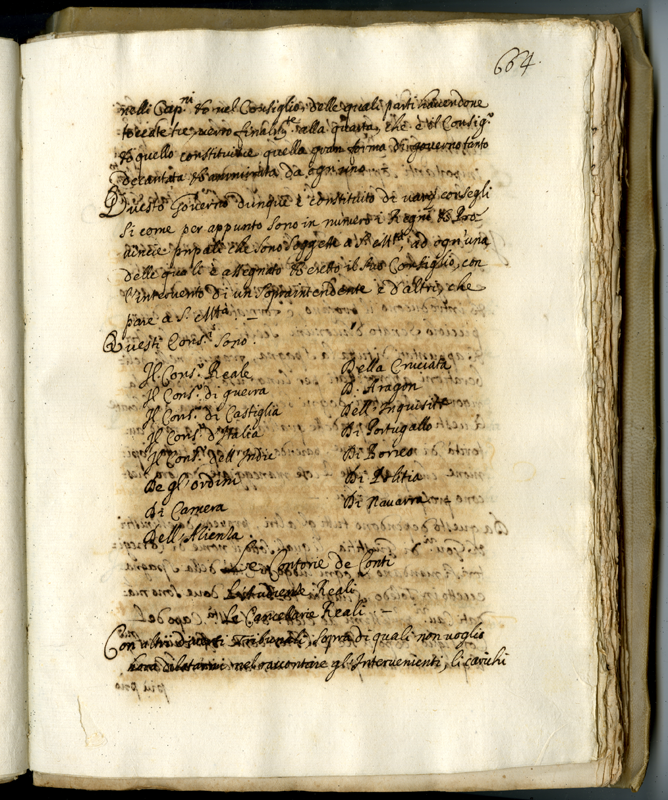 664.
nelli Cap.ni et nel Consiglio, delle quali parti havendone
toccate tre, verrò finalm.te alla quarta, che è il Consig.o
et quello constituisce quella gran forma di governo tanto
decantata et ammirata da ogn'uno
Questo Governo dunque è constituito di varij consegli
si come per appunto sono in numero i Regni et Pro-
vincie pnpale che sono soggette a S. Mtà, ad ogn'una
delle quali è assegnato et eretto il suo Consiglio, con
l'intervento di un sopraintendente e d'altri, che
pare a S. Mtà. –
Questi Cons.i sono.
Il Cons.o Reale
Il Cons.o di guerra
Il Cons.o di Castiglia
Il Cons.o d'Italia
Il Cons.o dell'Indie
De gl'ordini
Di Camera
Dell'Alienla.
Della Cruciata
D'Aragon
Dell'Inquisit.e
Di Portugallo
Di Borneo
Di Politia
Di Navarra
Le Contorie de Conti
L'Audienze Reali
Le Cancellarie Reali –
Con altri diversi Tribunali, sopra di quali non voglio
hora dilatarmi nel raccontare gl'Intervenienti, li carichi